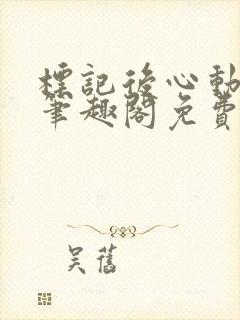 標記後心動
筆趣閣免費
吳舊